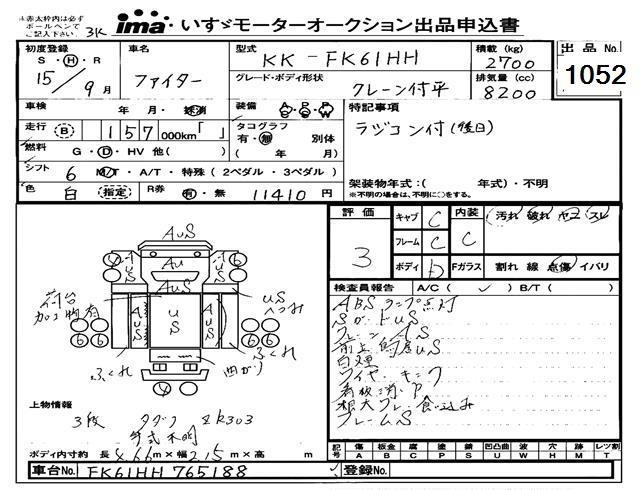 ※赤太枠内は必ず
ボールペンで
ご記入下さい
3K
ima いすゞモーターオークション出品申込書
初度登録 S・H・R 15/9月
車名 ファイター
型式 KK-FK61HH
積載(kg) 2700
グレード・ボディ形状 クレーン付平
排気量(cc) 8200
出品No. 1052
車検 年・月・
装備 A/C P/S P/W
特記事項
ラジコン付(後日)
走行 (B) 157,000km「 」
タコグラフ 有・無 別体
( 年 月)
燃料 G・D・HV 他( )
シフト 6 M/T・A/T・特殊(2ペダル・3ペダル)
色 白 (指定)
R券 有・無 11410円
架装物年式:( 年式)・不明
※不明の場合は、不明に○をする。
評価 3
キャブ C
フレーム C
ボディ D
内装 C
汚れ 破れ ヤコ スレ
Fガラス 割れ 線 点傷 イバリ
検査員報告 A/C( ✓ ) B/T( )
ABSランプ点灯
クレーンAS
ワイヤーキンク
フレームS
AUS
AU
AUS
AUS
AUS
US
AUS
荷台
加工物有
USへこみ
ふくれ
曲がり
ふくれ
6 6 6 6
上物情報
3段 タダノ ZR303
年式不明
ボディ内寸約 長 4.66m×幅 2.15m×高 m
記号 傷A 板金B 腐C 補P 錆S 凹凸曲U 波W 穴H 跡M レツ割T
車台No. FK61HH 765188
登録No.